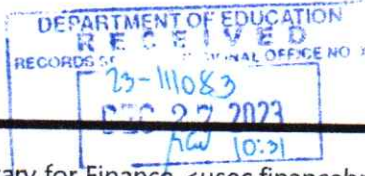 DEPARTMENT OF EDUCATION
RECEIVED
RECORDS OFFICE NO
23-111083
DEC 27 2023
10:31
ary for Finance <usec.financebp